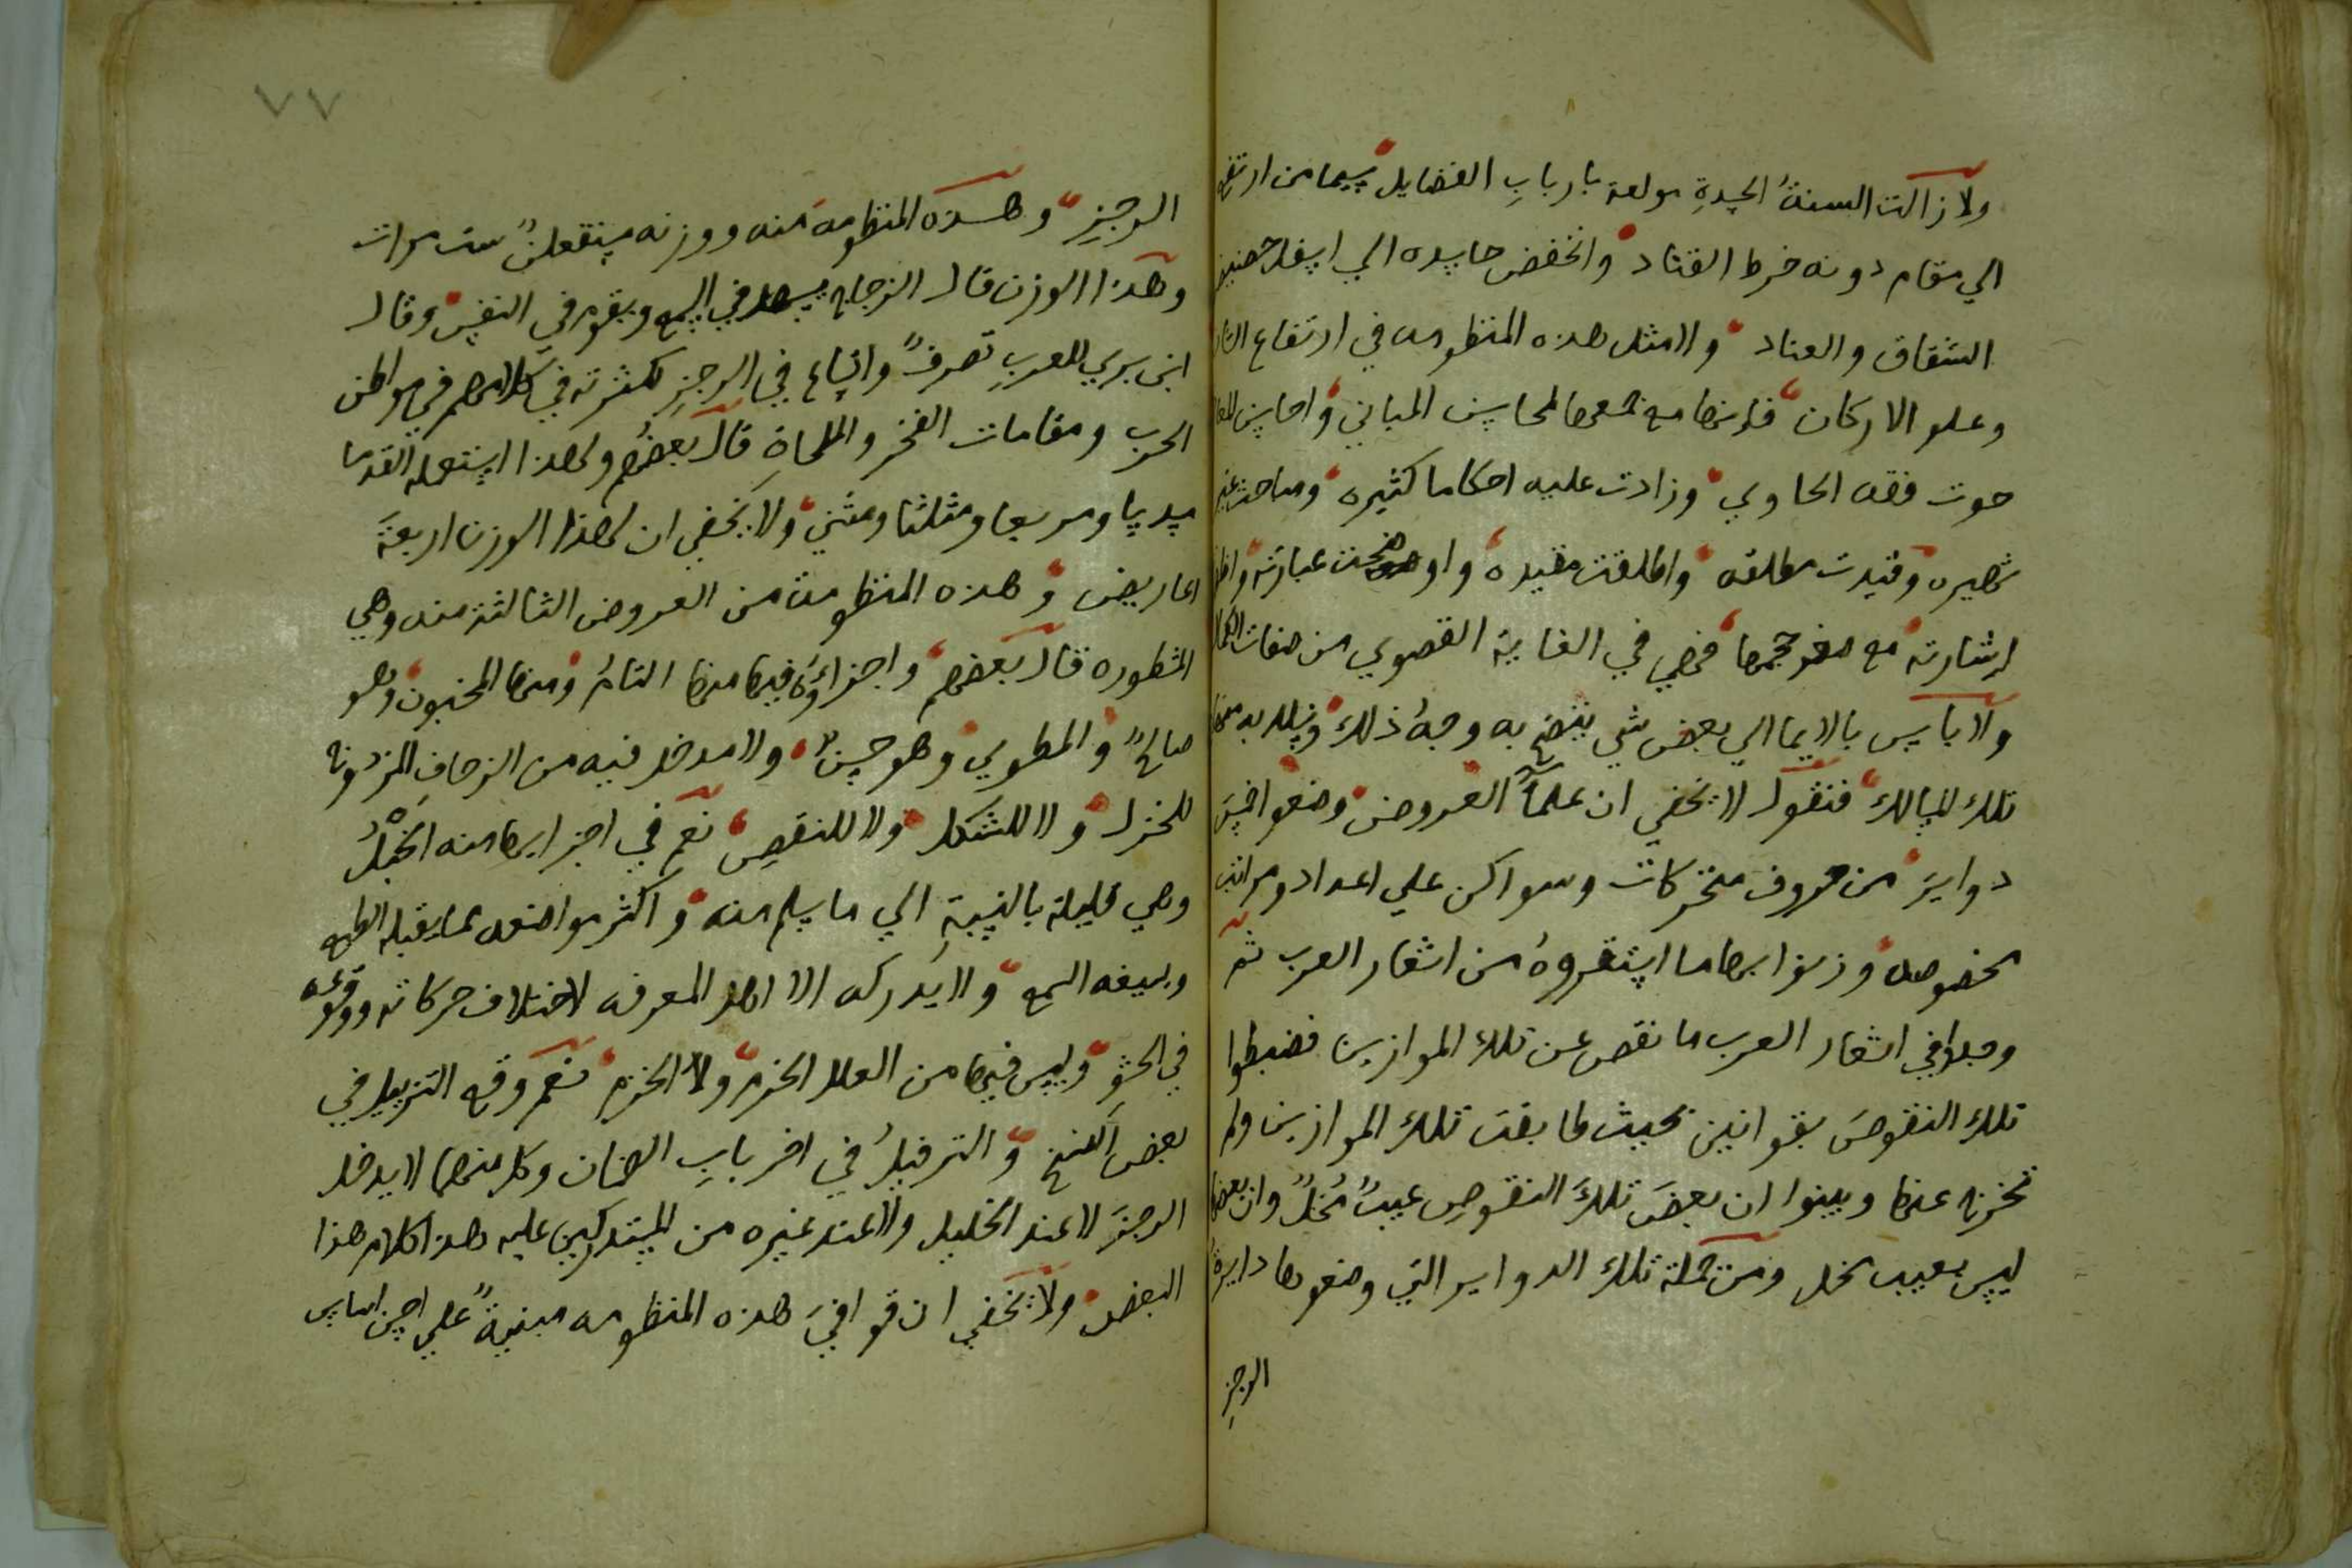 ولا زالت السنةُ الحسدةِ مولعة باربابِ الفضايل سيما من ارتفع
الي مقام دونه خرط القتاد وانخفض حاسده الي اسفل حضيض
الشقاق والعناد ولا مثل هذه المنظومه في ارتفاع الشان
وعلو الاركان فانها مع جمعها لمحاسن المباني واحاسن المعا
حوت فقه الحاوي وزادت عليه احكاما كثيره ومباحث غير
شهيره وقيدت مطلقه واطلقت مقيده واوضحت عبارته
اشارته مع صغر حجمها فهي في الغاية القصوي من صفات الكمال
ولا باس بالايما الي بعض شي يتضح به وجهُ ذلك ويسلك به
تلك المسالك فنقول لا يخفي ان علمآ العروض وضعوا خمسَ
دوايرَ من حروف متحركات وسواكن علي اعداد ومراتب
مخصوصه وزنوا بها ما استقروهُ من اشعار العرب ثم
وجدوا في اشعار العرب ما نقص عن تلك الموازين فضبطوا
تلك النقوصَ بقوانين بحيث طابقت تلك الموازين ولم
تخرج عنها وبينوا ان بعضَ تلكَ النقوصِ عيبٌ مُخلٌ وان بعضها
ليس بعيب مخل ومن جملة تلك الدواير التي وضعوها دايرة
الرجزِ
٧٧
الرجزِ وهذه المنظومة منه ووزنه مستفعلنْ ست مرات
وهذا الوزن قال الزجاج يسهل في السمع ويقوم في النفس وقال
ابن بري للعربِ تصرفٌ واتساع في الرجزِ لكثرته في كلامهم في مواطن
الحرب ومقامات الفخر والملحاة قال بعضُهم ولهذا استعمله القدما
مسدسا ومربعا ومثلثا ومثني ولا يخفي ان لهذا الوزن اربعةَ
اعاريض وهذه المنظومة من العروض الثالثة منه وهي
المشطوره قال بعضهم واجزاؤُهُ فيها منها التامُ ومنها المخبون وهو
صالحٌ والمطوي وهو حسنٌ ولا مدخل فيه من الزحافِ المزدوج
للخزل ولا للشكل ولا للنقصِ نعم في اجزايها منه الخبْلُ
وهي قليلة بالنسبةِ الي ما سلم منه واكثر مواضعه مما يقبله الطبع
ويسيغه السمع ولا يُدركه الا اهل المعرفه لاختلاف حركاته ووقوعه
في الحشو وليس فيها من العلل الخرم ولا الخزم نعم وقع التذييل في
بعض النسخ والترفيلُ في اخر بابِ الضمان وكل منهما لا يدخل
الرجزَ لا عند الخليل ولا عند غيره من المستدركين عليه هذا كلام هذا
البعض ولا يخفي ان قوافيَ هذه المنظومه مبنيةٌ علي احسن اساس